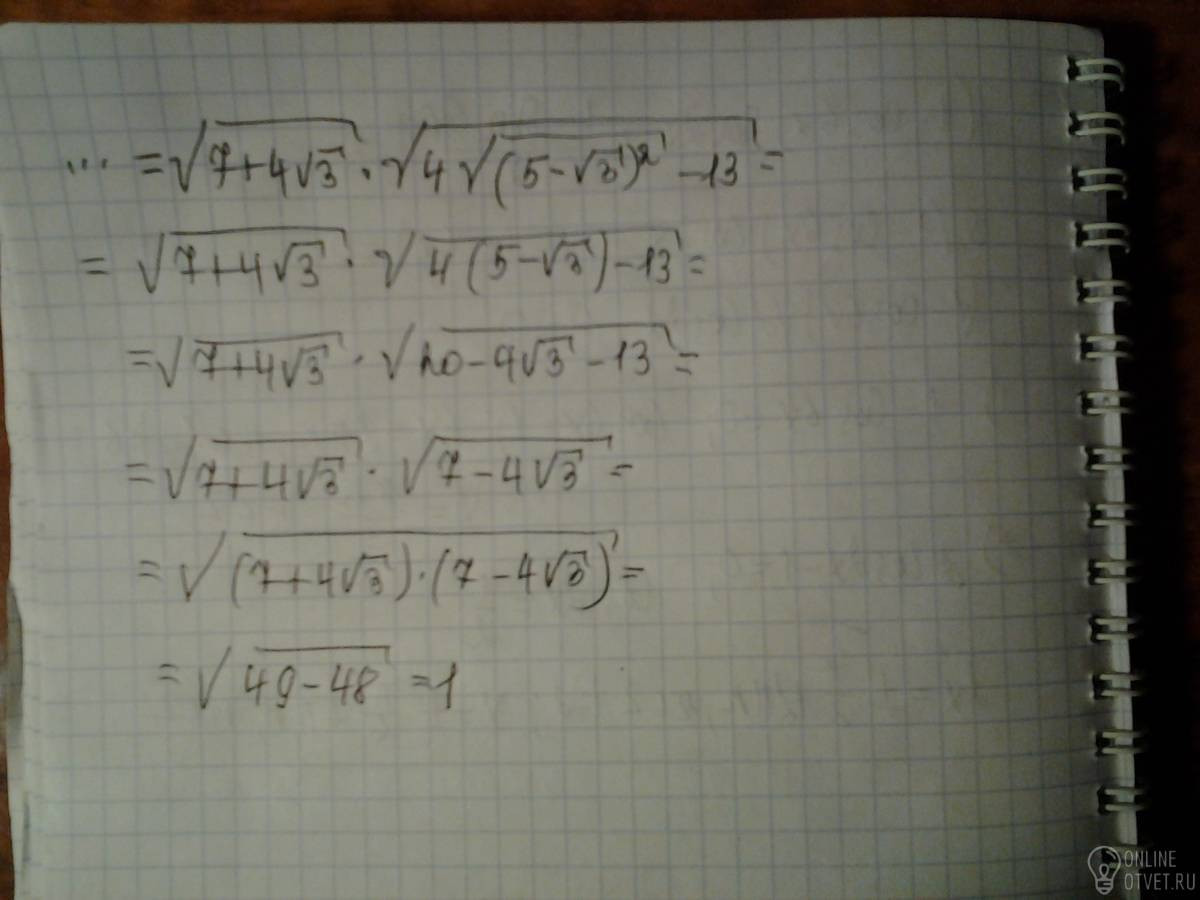 ... = √(7+4√3) · √(4√((5-√3)²) - 13) =
= √(7+4√3) · √(4(5-√3)-13) =
= √(7+4√3) · √(20-4√3-13) =
= √(7+4√3) · √(7-4√3) =
= √((7+4√3)·(7-4√3)) =
= √(49-48) = 1
ONLINE
OTVET.RU